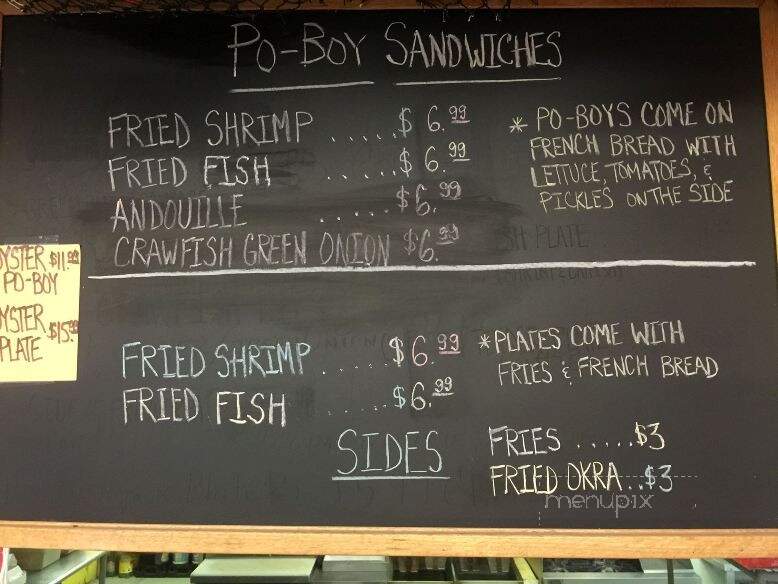 PO-BOY SANDWICHES
FRIED SHRIMP ..... $ 6.99
FRIED FISH ..... $ 6.99
ANDOUILLE ..... $6.99
CRAWFISH GREEN ONION $6.99
* PO-BOYS COME ON
FRENCH BREAD WITH
LETTUCE, TOMATOES, &
PICKLES ON THE SIDE
SH PLATE
OYSTER $11.99
PO-BOY
OYSTER
PLATE $15.99
FRIED SHRIMP ..... $6.99
FRIED FISH ..... $6.99
*PLATES COME WITH
FRIES & FRENCH BREAD
SIDES
FRIES ..... $3
FRIED OKRA..$3
menupix